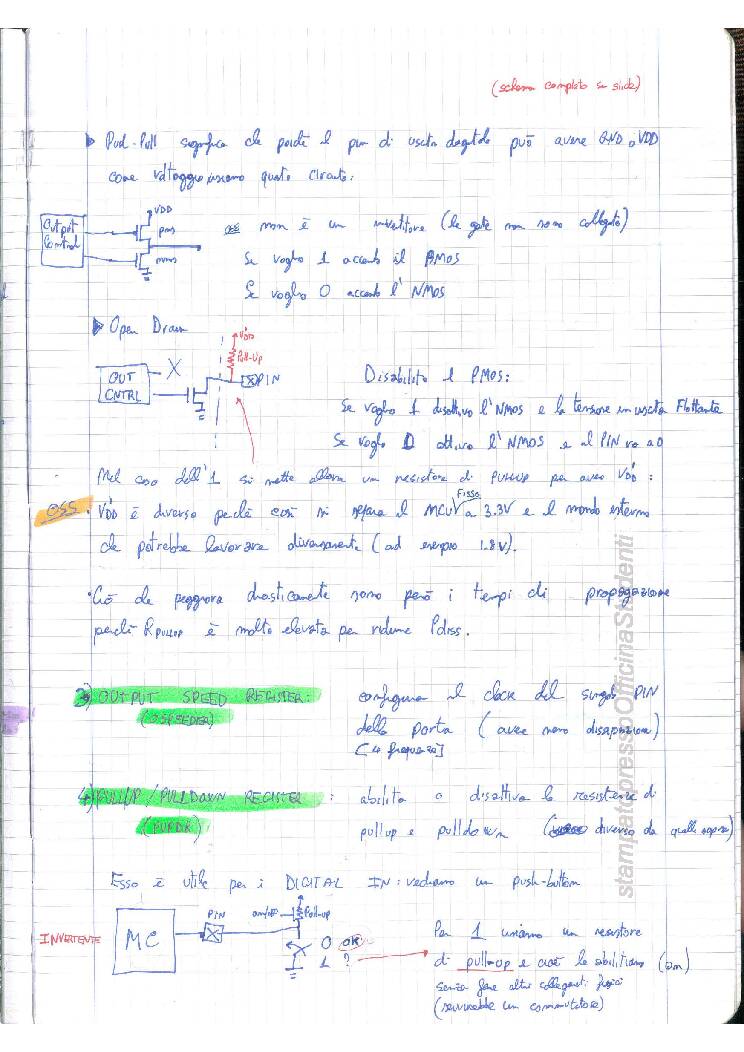 (schema completo su slide)
▶ Push-Pull significa che poiché il pin di uscita digitale può avere GND o VDD
come voltaggio usiamo questo circuito:
VDD
Output
Control
pmos
nmos
oss non è un invertitore (le gate non sono collegate)
Se voglio 1 accendo il PMOS
Se voglio 0 accendo l'NMOS
▶ Open Drain
V'DD
Pull-Up
OUT
CNTRL
X
PIN
Disabilito il PMOS:
Se voglio 1 disattivo l'NMOS e la tensione in uscita Flottante
Se voglio 0 attivo l'NMOS e al PIN va a 0
Nel caso dell'1 si mette allora un resistore di PULLUP per avere V'DD:
OSS. V'DD è diverso perché così si separa il MCU Fisso a 3.3V e il mondo esterno
che potrebbe lavorare diversamente (ad esempio 1.8V).
Ciò che peggiora drasticamente sono però i tempi di propagazione
perché RPULLUP è molto elevata per ridurre Pdiss.
3) OUTPUT SPEED REGISTER:
(OSPEEDER)
configura il clock del singolo PIN
della porta (avere meno dissipazione)
[4 frequenze]
4) PULLUP / PULLDOWN REGISTER :
(PUPDR)
abilita o disattiva le resistenze di
pullup e pulldown ( diverso da quelle sopra)
Esso è utile per i DIGITAL IN: vediamo un push-button
INVERTENTE
MC
PIN
on/off
Pull-up
0 OK
1 ?
Per 1 usiamo un resistore
di pull-up e cioè lo abilitiamo (on)
senza fare altri collegamenti fisici
(servirebbe un commutatore)
stampatopressoOfficinaStudenti